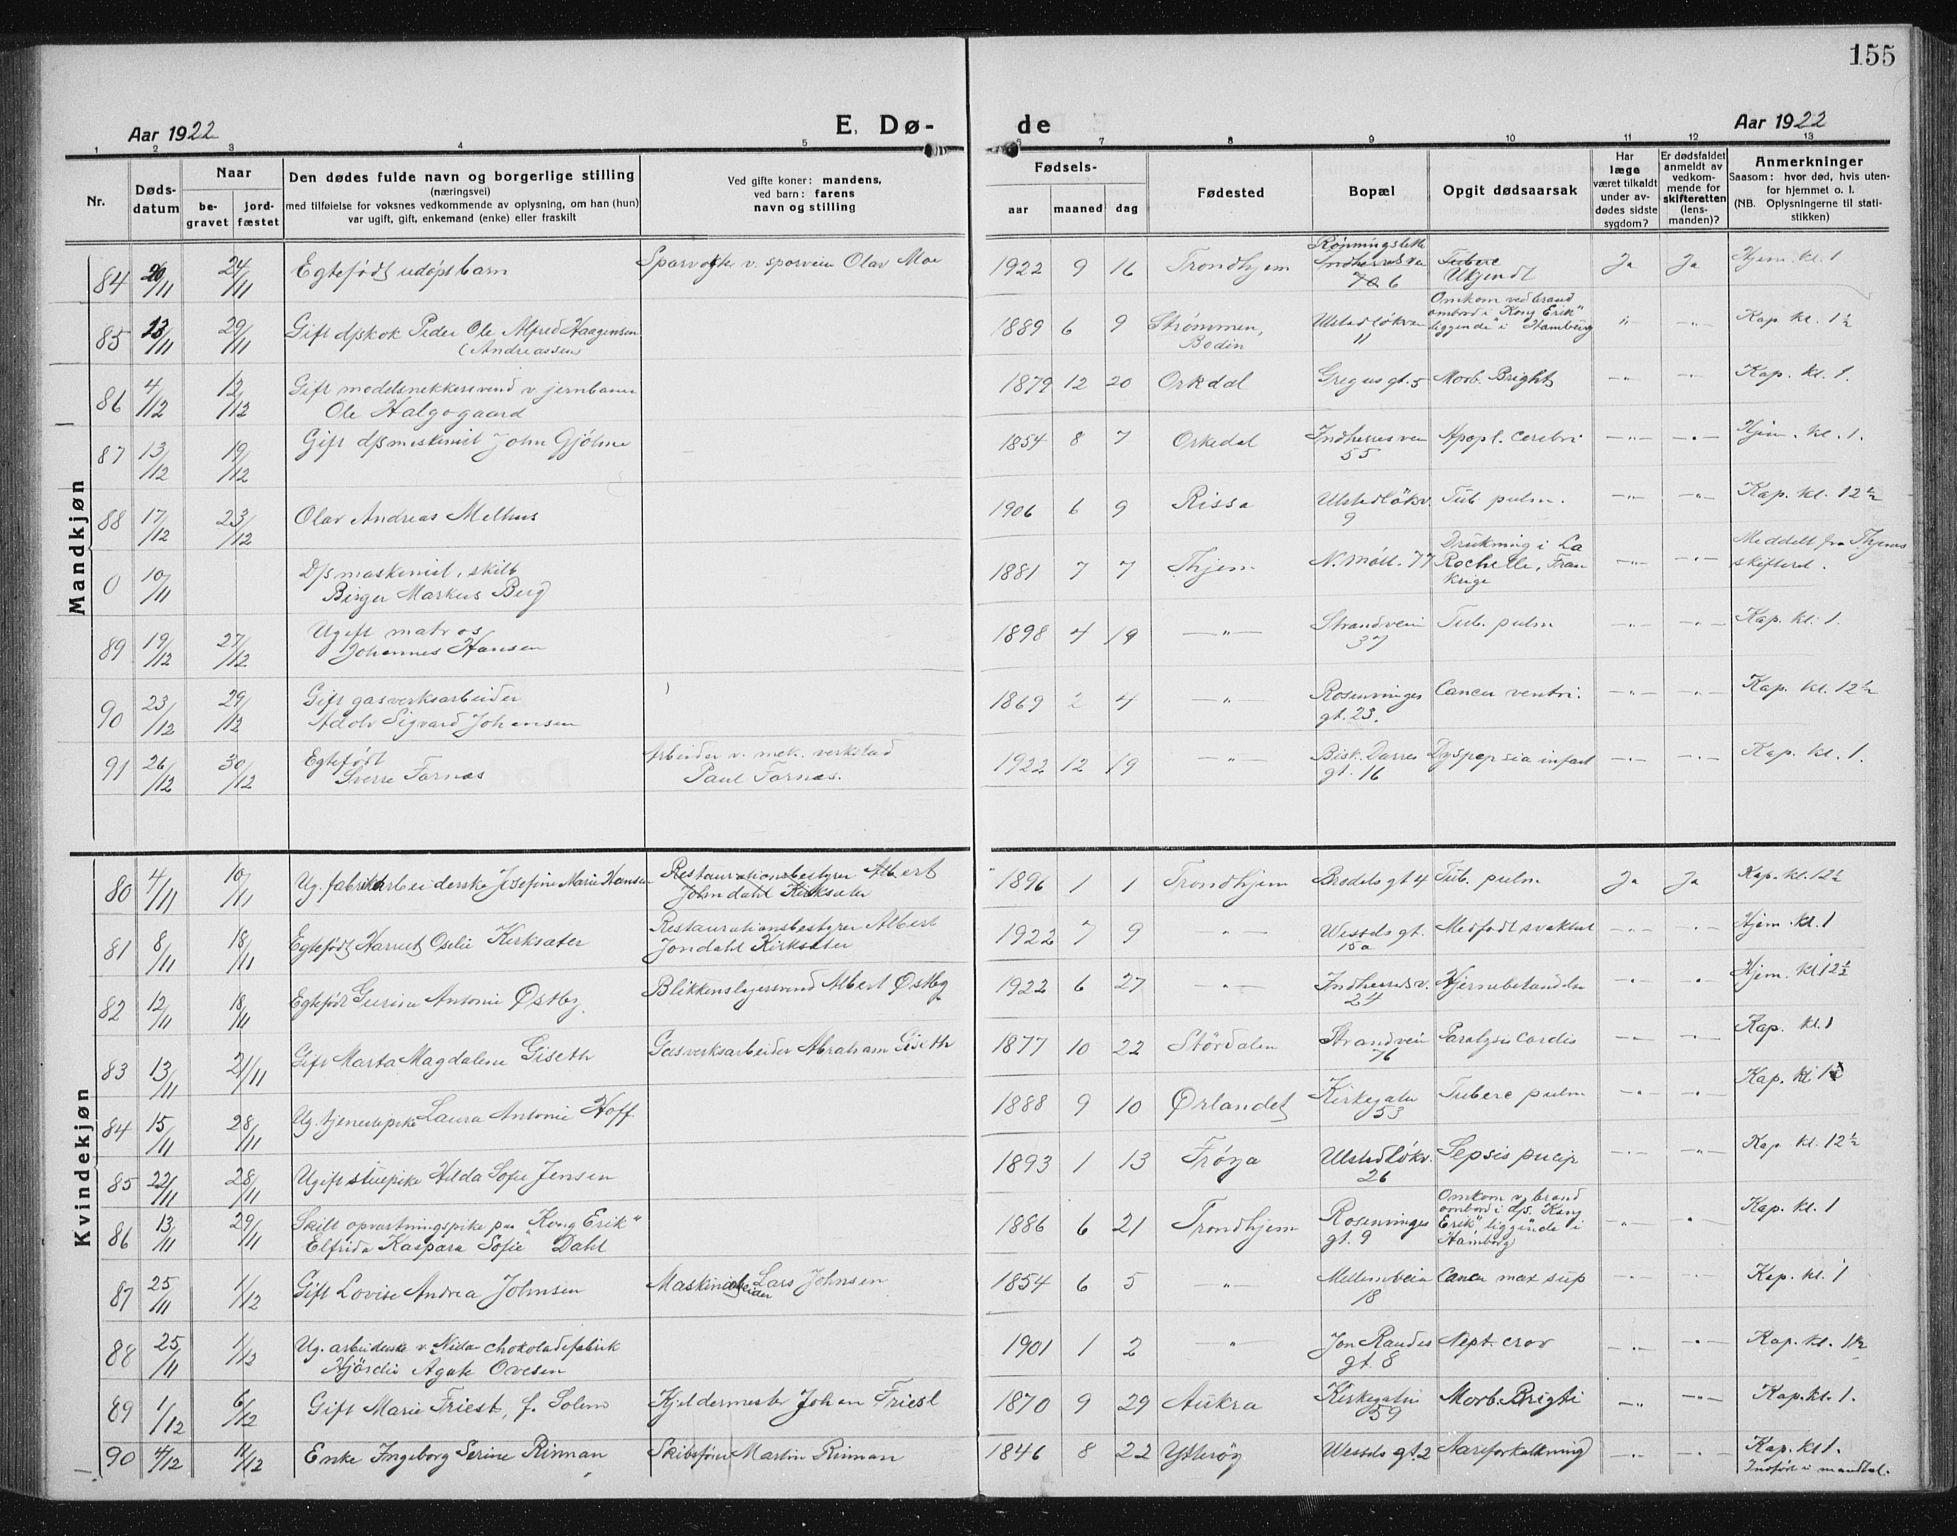 155
Aar 1922
E. Dø-
de
Aar 1922
1 2 3 4 5 6 7 8 9 10 11 12 13
Nr.
Døds-
datum
Naar
be-
gravet
jord-
fæstet
Den dødes fulde navn og borgerlige stilling
(næringsvei)
med tilføielse for voksnes vedkommende av oplysning, om han (hun)
var ugift, gift, enkemand (enke) eller fraskilt
Ved gifte koner: mandens,
ved barn: farens
navn og stilling
Fødsels-
aar maaned dag
Fødested
Bopæl
Opgit dødsaarsak
Har
læge
været tilkaldt
under av-
dødes sidste
sygdom?
Er dødsfaldet
anmeldt av
vedkom-
mende for
skifteretten
(lens-
manden)?
Anmerkninger
Saasom: hvor død, hvis uten-
for hjemmet o. l.
(NB. Oplysningerne til stati-
stikken)
Mandkjøn
84 20/11 24/11 Egtefødt udøpt barn Sporvogter v. sporveien Olav Moe 1922 9 16 Trondhjem Indherredsvei 6 Ukjendt Ja Ja Hjem. kl. 1
85 13/11 29/11 Gift dpskok Peder Ole Alfred Haagensen
(Andreassen) 1889 6 9 Strømmen,
Bodin Ulstadløkvn
11 Omkom ved brand
ombord i "Kong Erik"
liggende i Hamburg " -"- Kap. kl. 1½
86 4/12 12/12 Gift modelsnekkersvend v. jernbanen
Ole Halgogaard 1879 12 20 Orkdal Gregus gt. 5 Morb. Brighti -"- -"- Kap. kl. 1.
87 13/12 19/12 Gift dpsmaskinist John Gjølme 1854 8 7 Orkedal Indherresvein
55 Apopl. cerebri -"- -"- Hjem. kl. 1.
88 17/12 23/12 Olav Andreas Melhus 1906 6 9 Rissa Ulstadløkv.
9 Tub. pulm. -"- -"- Kap. kl. 12½
0 10/11 D/s maskinist, skilt
Birger Markus Berg 1881 7 7 Thjem N. Møll. 77 Drukning i La
Rochelle, Fran
krige -"- -"- Meddelt fra Thjems
skifteret.
89 19/12 27/12 Ugift matros
Johannes Hansen 1898 4 19 -"- Strandveien
37 Tub. pulm -"- -"- Kap. kl. 1.
90 23/12 29/12 Gift gasverksarbeider
Adolv Sigvard Johansen 1869 2 4 -"- Rosenvinges
gt. 23. Cancer ventri. -"- -"- Kap. kl. 12½
91 26/12 30/12 Egtefødt
Sverre Fornæs Arbeider v. mek. verkstad
Paul Fornæs. 1922 12 19 Bisk. Darres
gt. 16 Dyspepsia infant -"- -"- Kap. kl. 1.
Kvindekjøn
80 4/11 10/11 Ug. fabrikarbeiderske Josefine Marie Hansen Restaurationsbestyrer Albert
Johndahl Kirksæter 1896 1 1 Trondhjem Brodels gt 4 Tub. pulm Ja Ja Kap. kl. 12½
81 8/11 18/11 Egtefødt Harriet Oselie Kirksæter Restaurationsbestyrer Albert
Jondahl Kirksæter 1922 7 9 -"- Wessels gt.
15a Medfødt svakhet -"- -"- Hjem. kl. 1
82 12/11 18/11 Egtefødt Gurine Antonie Østby Blikkenslagersvend Albert Østby 1922 6 27 -"- Indherredsv.
24 Hjernebetændelse -"- -"- Hjem. kl 12½
83 13/11 21/11 Gift Marta Magdalene Giseth Gasverksarbeider Abraham Giseth 1877 10 22 Stördalen Strandveien
76 Paralysis cordis -"- -"- Kap. kl. 1
84 15/11 28/11 Ug. tjenestepike Laura Antonie Hoff 1888 9 10 Ørlandet Kirkegaten
53 Tuberc pulm -"- -"- Kap. kl.
85 22/11 28/11 Ugift stuepike Hilda Sofie Jensen 1893 1 13 Frøya Ulstadløkv.
26 Sepsis -"- -"- Kap kl. 12½
86 13/11 29/11 Skilt opvartningspike paa "Kong Erik"
Elfrida Kaspara Sofie Dahl 1886 6 21 Trondhjem Rosenvinges
gt. 9 Omkom v. brand
ombord i d/s. "Kong
Erik", liggende i
Hamborg -"- " Kap. kl. 1
87 25/11 1/12 Gift Lovise Andrea Johnsen Maskinarbeider Lars Johnsen 1854 6 5 -"- Mellemveien
18 Cancer max sup -"- -"- Kap. kl. 1
88 25/11 1/12 Ug. arbeiderske v. Nidar chokoladefabrik
Hjørdis Agate Ovesen 1901 1 2 -"- Jon Raudes
gt. 8 -"- -"- Kap. kl. 1½
89 1/12 6/12 Gift Marie Friest, f. Solem Kjeldermester Johan Friest 1870 9 29 Aukra Kirkegaten
59 Morb. Brigti -"- -"- Kap. kl. 1.
90 4/12 11/12 Enke Ingeborg Serine Rinnan Skibsfører Martin Rinnan 1846 8 22 Ytterøy Wessels gt. 2 Aareforkalkning -"- -"- Kap. kl. 1.
Indført i mandtal.